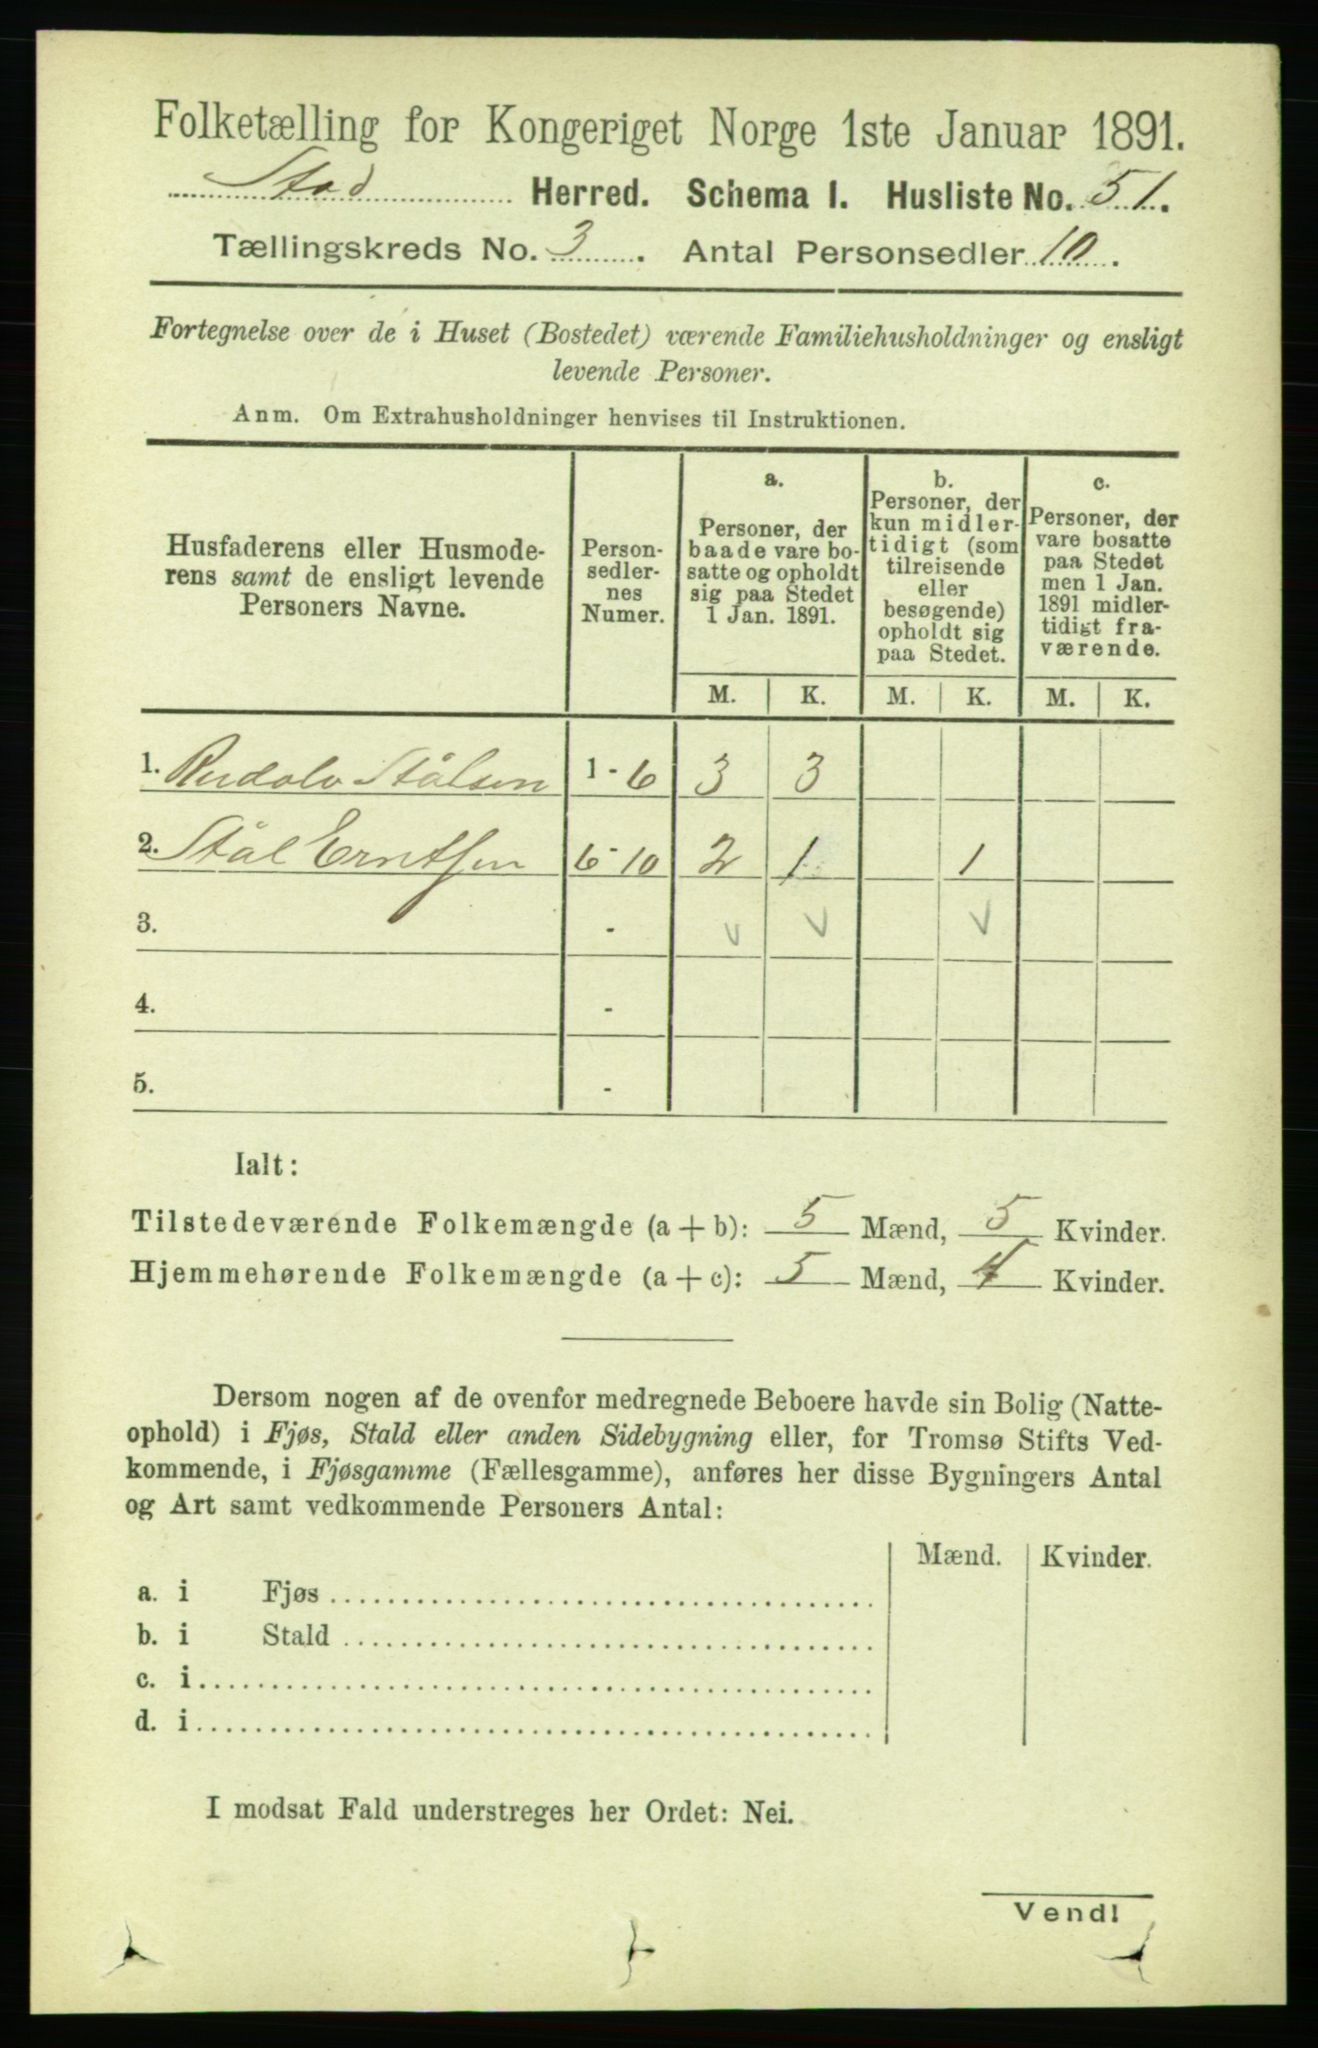 Folketælling for Kongeriget Norge 1ste Januar 1891.
Stod Herred. Schema I. Husliste No. 51.
Tællingskreds No. 3. Antal Personsedler 10.
Fortegnelse over de i Huset (Bostedet) værende Familiehusholdninger og ensligt
levende Personer.
Anm. Om Extrahusholdninger henvises til Instruktionen.
Husfaderens eller Husmode-
rens samt de ensligt levende
Personers Navne.
Person-
sedler-
nes
Numer.
a.
Personer, der
baade vare bo-
satte og opholdt
sig paa Stedet
1 Jan. 1891.
b.
Personer, der
kun midler-
tidigt (som
tilreisende
eller
besøgende)
opholdt sig
paa Stedet.
c.
Personer, der
vare bosatte
paa Stedet
men 1 Jan.
1891 midler-
tidigt fra-
værende.
M. K. M. K. M. K.
1. Rudolv Stålsen 1 - 6 3 3
2. Stål Erntsen 6 - 10 2 1 1
3. -
4. -
5. -
Ialt:
Tilstedeværende Folkemængde (a + b): 5 Mænd, 5 Kvinder.
Hjemmehørende Folkemængde (a + c): 5 Mænd, 4 Kvinder.
Dersom nogen af de ovenfor medregnede Beboere havde sin Bolig (Natte-
ophold) i Fjøs, Stald eller anden Sidebygning eller, for Tromsø Stifts Ved-
kommende, i Fjøsgamme (Fællesgamme), anføres her disse Bygningers Antal
og Art samt vedkommende Personers Antal:
Mænd. Kvinder.
a. i Fjøs
b. i Stald
c. i
d. i
I modsat Fald understreges her Ordet: Nei.
Vend!